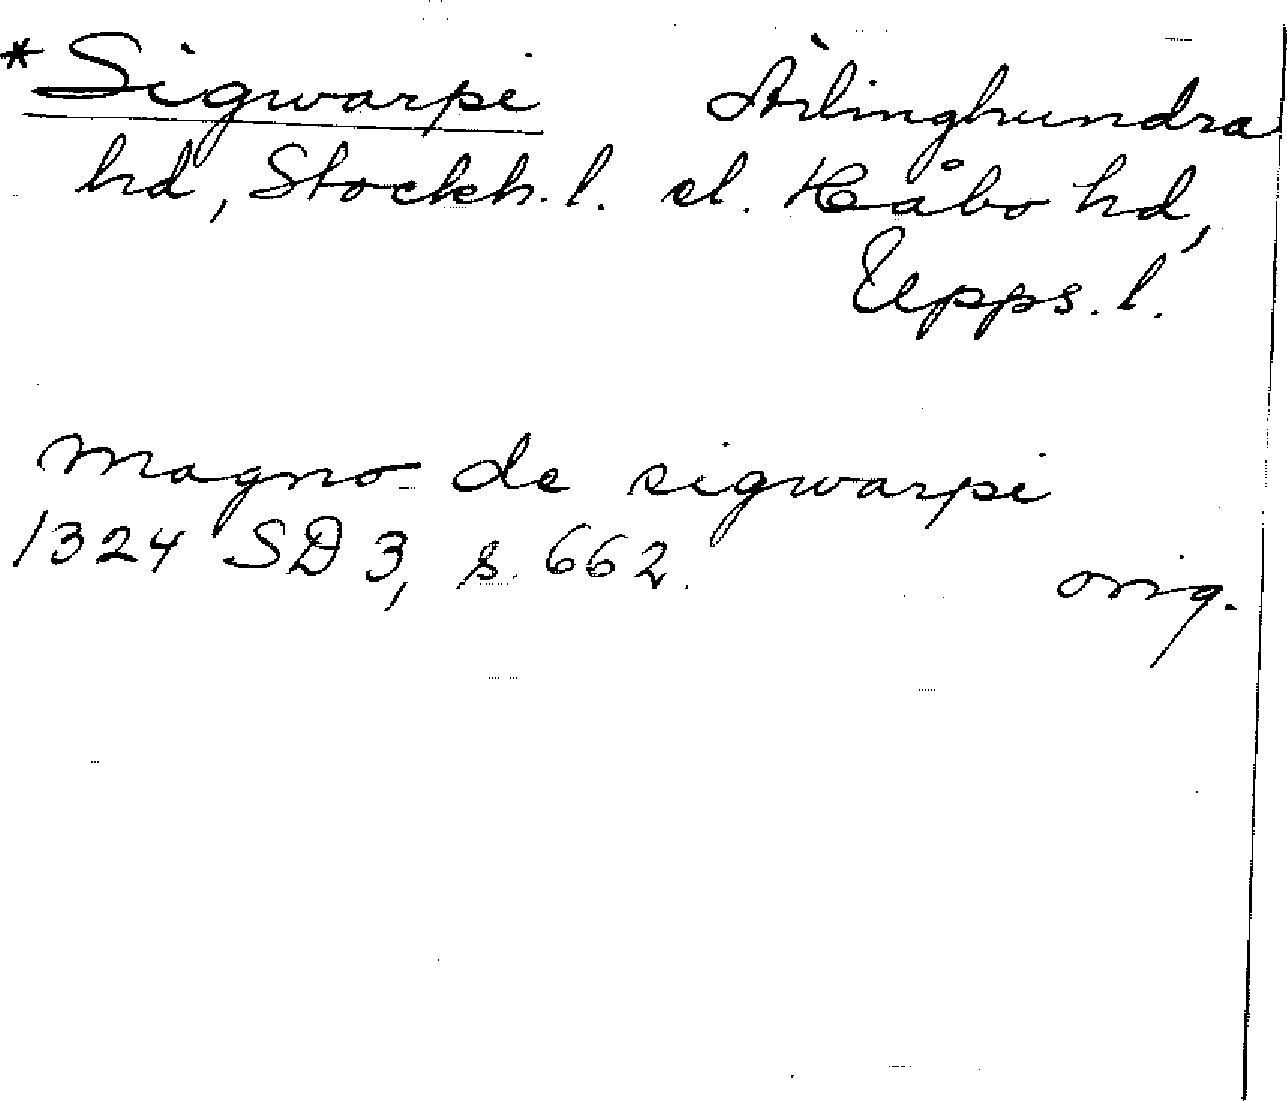 *Sigwarpi Ärlinghundra
hd, Stockh. l. el. Håbo hd,
Upps. l.
Magno de sigwarpi
1324 SD 3, s. 662. orig.